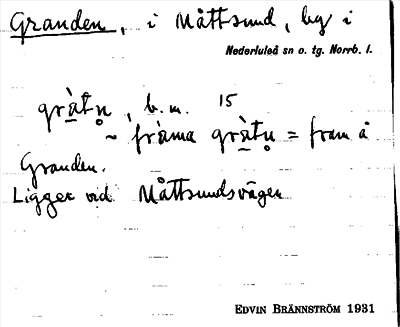 Granden, i Måttsund, by i
Nederluleå sn o. tg. Norrb. l.
gràtṇ, b. m. 15
~ fràma gràtṇ = fram å
Granden.
Ligger vid Måttsundsvägen
EDVIN BRÄNNSTRÖM 1931